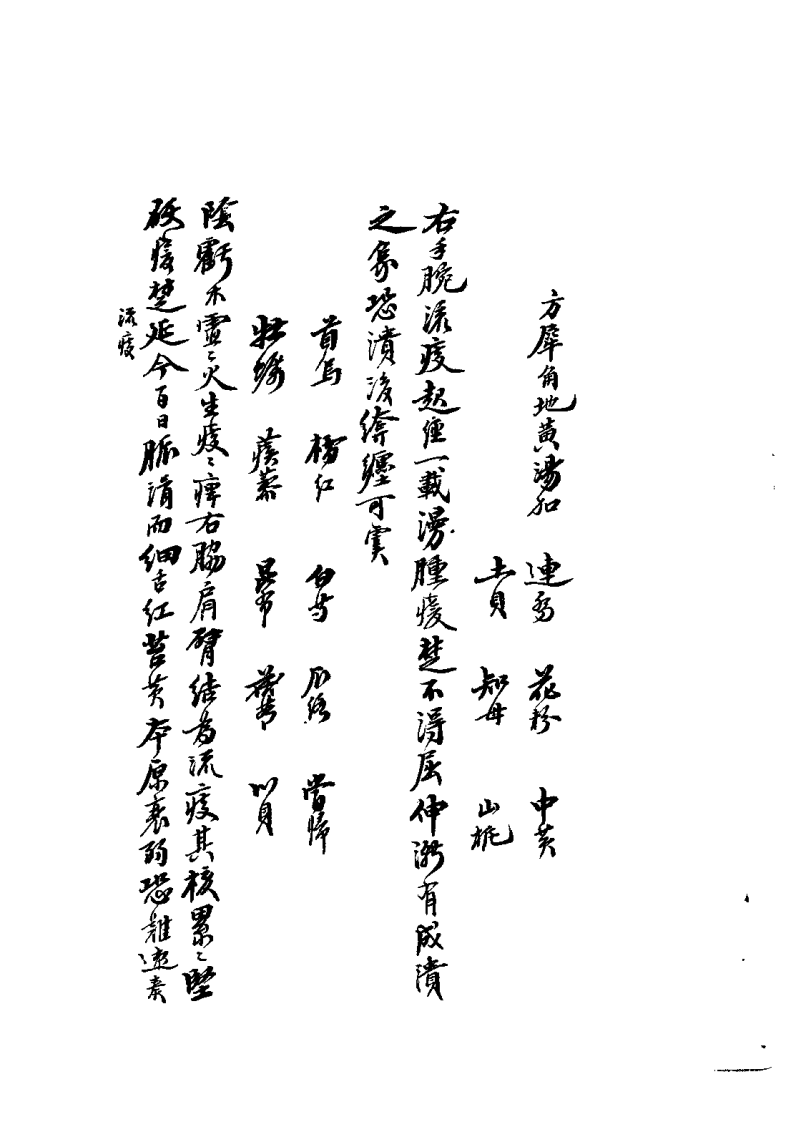 方犀角地黄湯加
連乔 花粉 中黄
土貝 知母 山栀
右手腕流痰起經一載漫腫痠楚不得屈伸漸有成潰
之象恐潰後纏可虞
首烏 橘紅 白芍 瓜絡 當歸
牡蠣 痰藥 昆布 川貝
陰虧木鬱鬱火生痰痰痺右脇肩臂結為流痰其核累累堅
硬痠楚延今百日脈滑而細舌紅苔黄本原衰弱恐難速奏
流痰